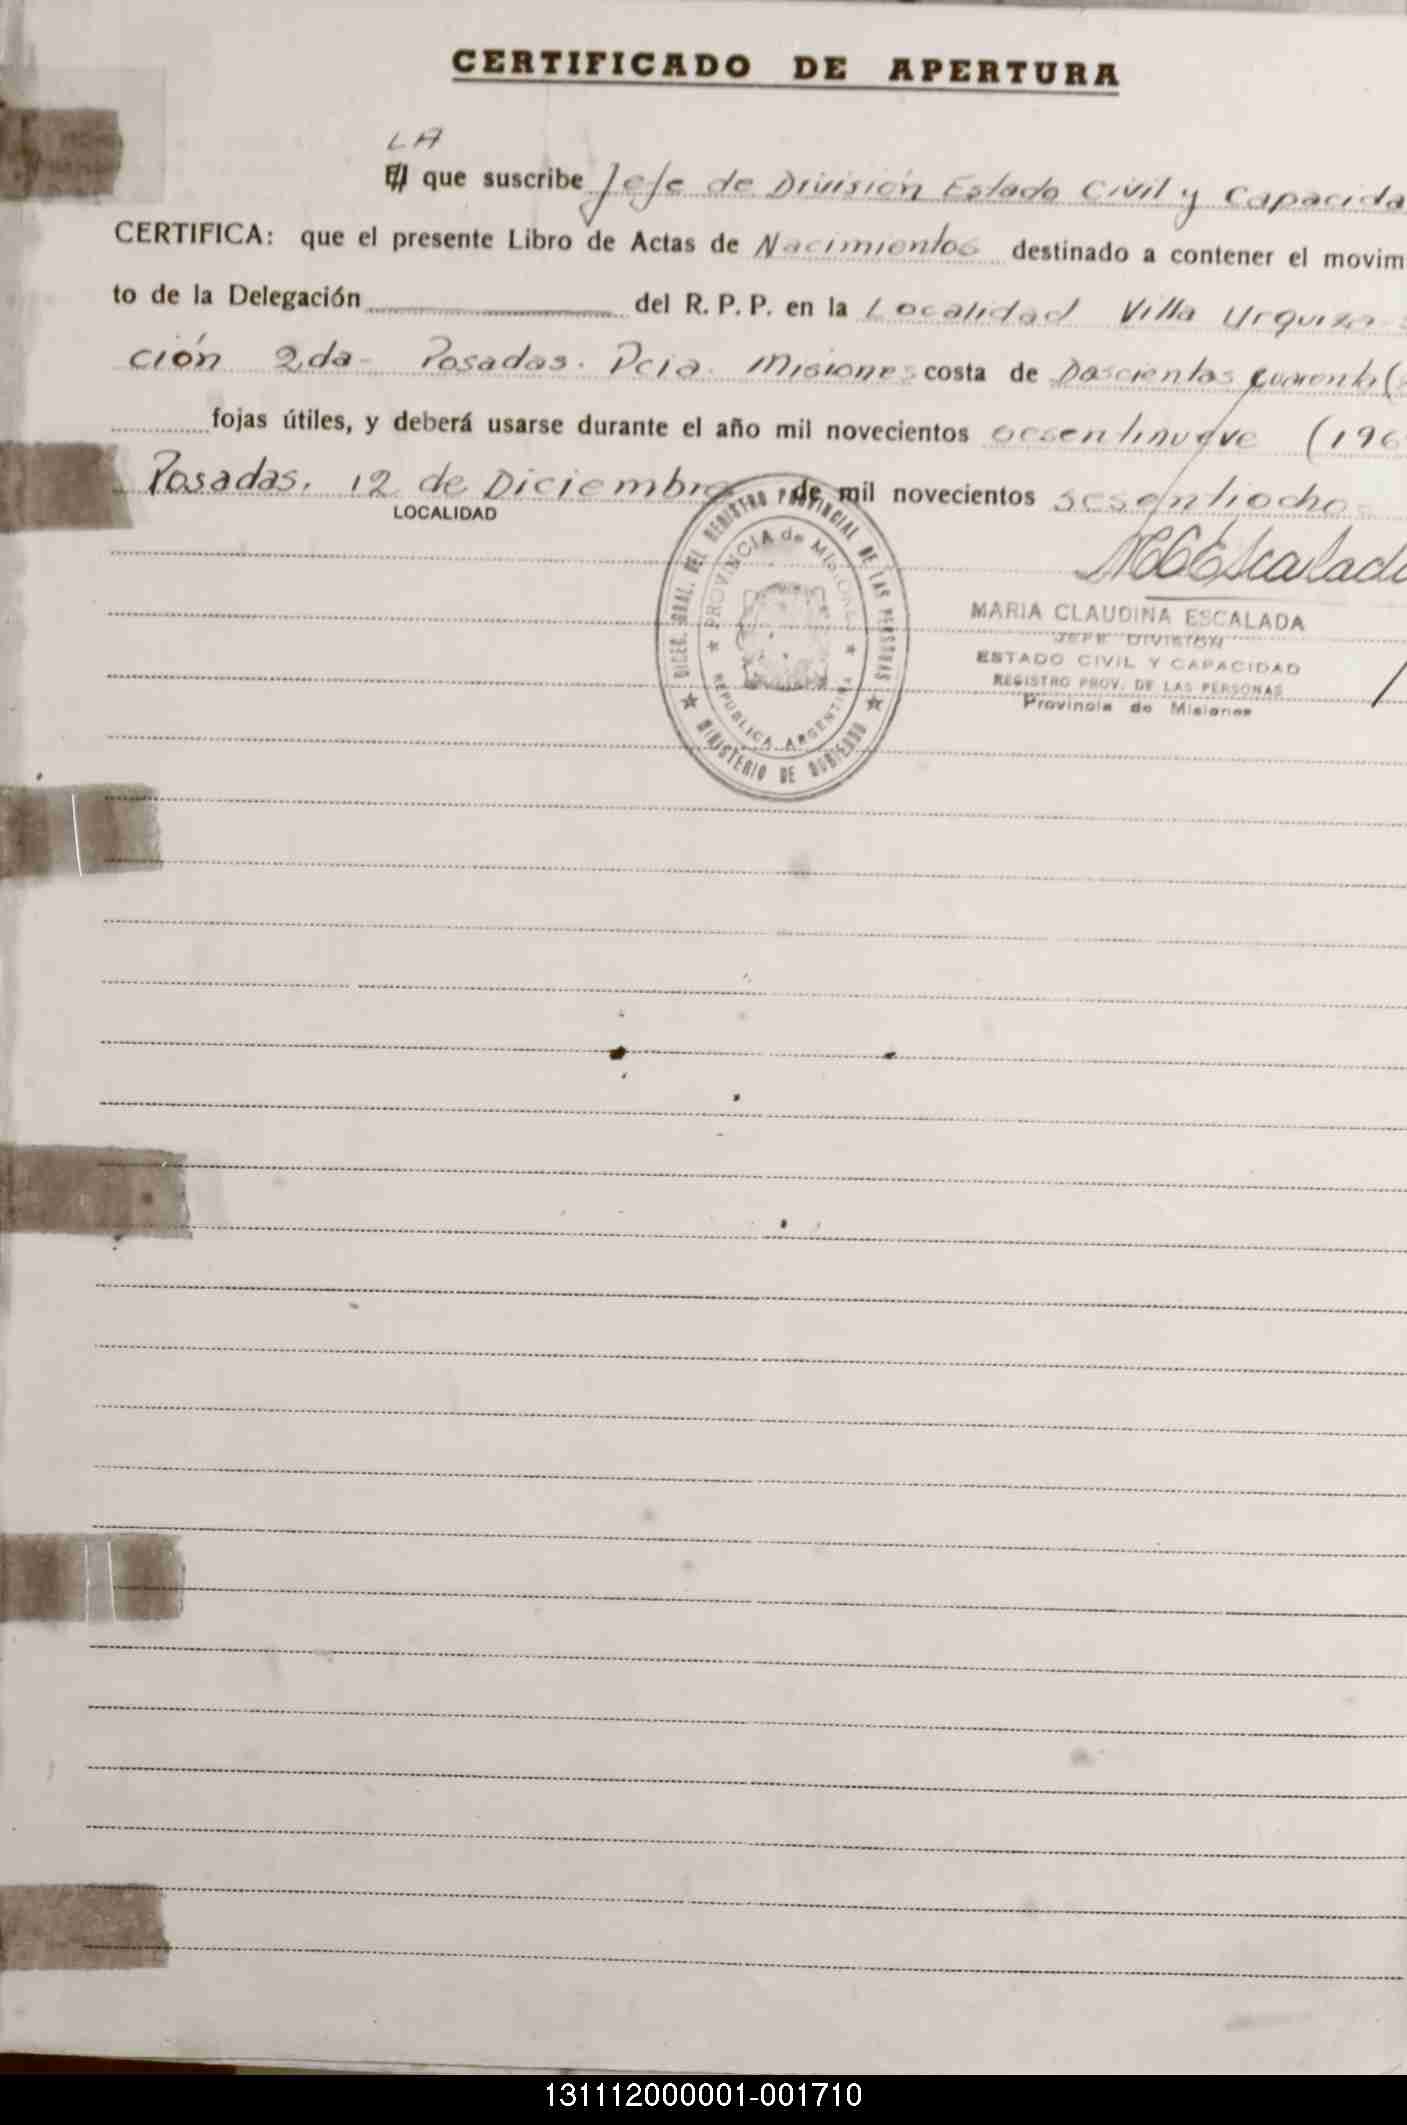 CERTIFICADO DE APERTURA
LA
El que suscribe Jefe de División Estado Civil y Capacida
CERTIFICA: que el presente Libro de Actas de Nacimientos destinado a contener el movim
to de la Delegación del R. P. P. en la Localidad Villa Urquiza
ción 2da- Posadas. Pcia. Misiones costa de Doscientas cuarenta (
fojas útiles, y deberá usarse durante el año mil novecientos sesentinueve (196
Posadas. 12 de Diciembre de mil novecientos sesentiocho.
LOCALIDAD
DIREC. GRAL. DEL REGISTRO PROVINCIAL DE LAS PERSONAS
PROVINCIA de MISIONES
REPUBLICA ARGENTINA
MINISTERIO DE GOBIERNO
MCEscalada
MARIA CLAUDINA ESCALADA
JEFE DIVISION
ESTADO CIVIL Y CAPACIDAD
REGISTRO PROV. DE LAS PERSONAS
Provincia de Misiones
131112000001-001710